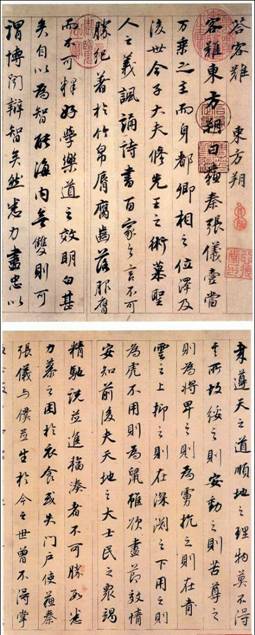 答客難 東方朔
客難東方朔曰蘇秦張儀壹當
萬乘之主而身都卿相之位澤及
後世今子大夫修先王之術慕聖
人之義諷誦詩書百家之言不可
勝紀著於竹帛唇腐齒落服膺
而不可釋好學樂道之效明白甚
矣自以為智能海內無雙則可
謂博聞辯智矣然悉力盡忠以
遵天之道順地之理物莫不得
其所故綏之則安動之則苦尊之
則為將卑之則為虜抗之則在青
雲之上抑之則在深淵之下用之則
為虎不用則為鼠雖欲盡節效情
安知前後夫天地之大士民之衆竭
精馳說並進輻湊者不可勝數悉
力慕之困於衣食或失門戶使蘇秦
張儀與僕並生於今之世曾不得掌